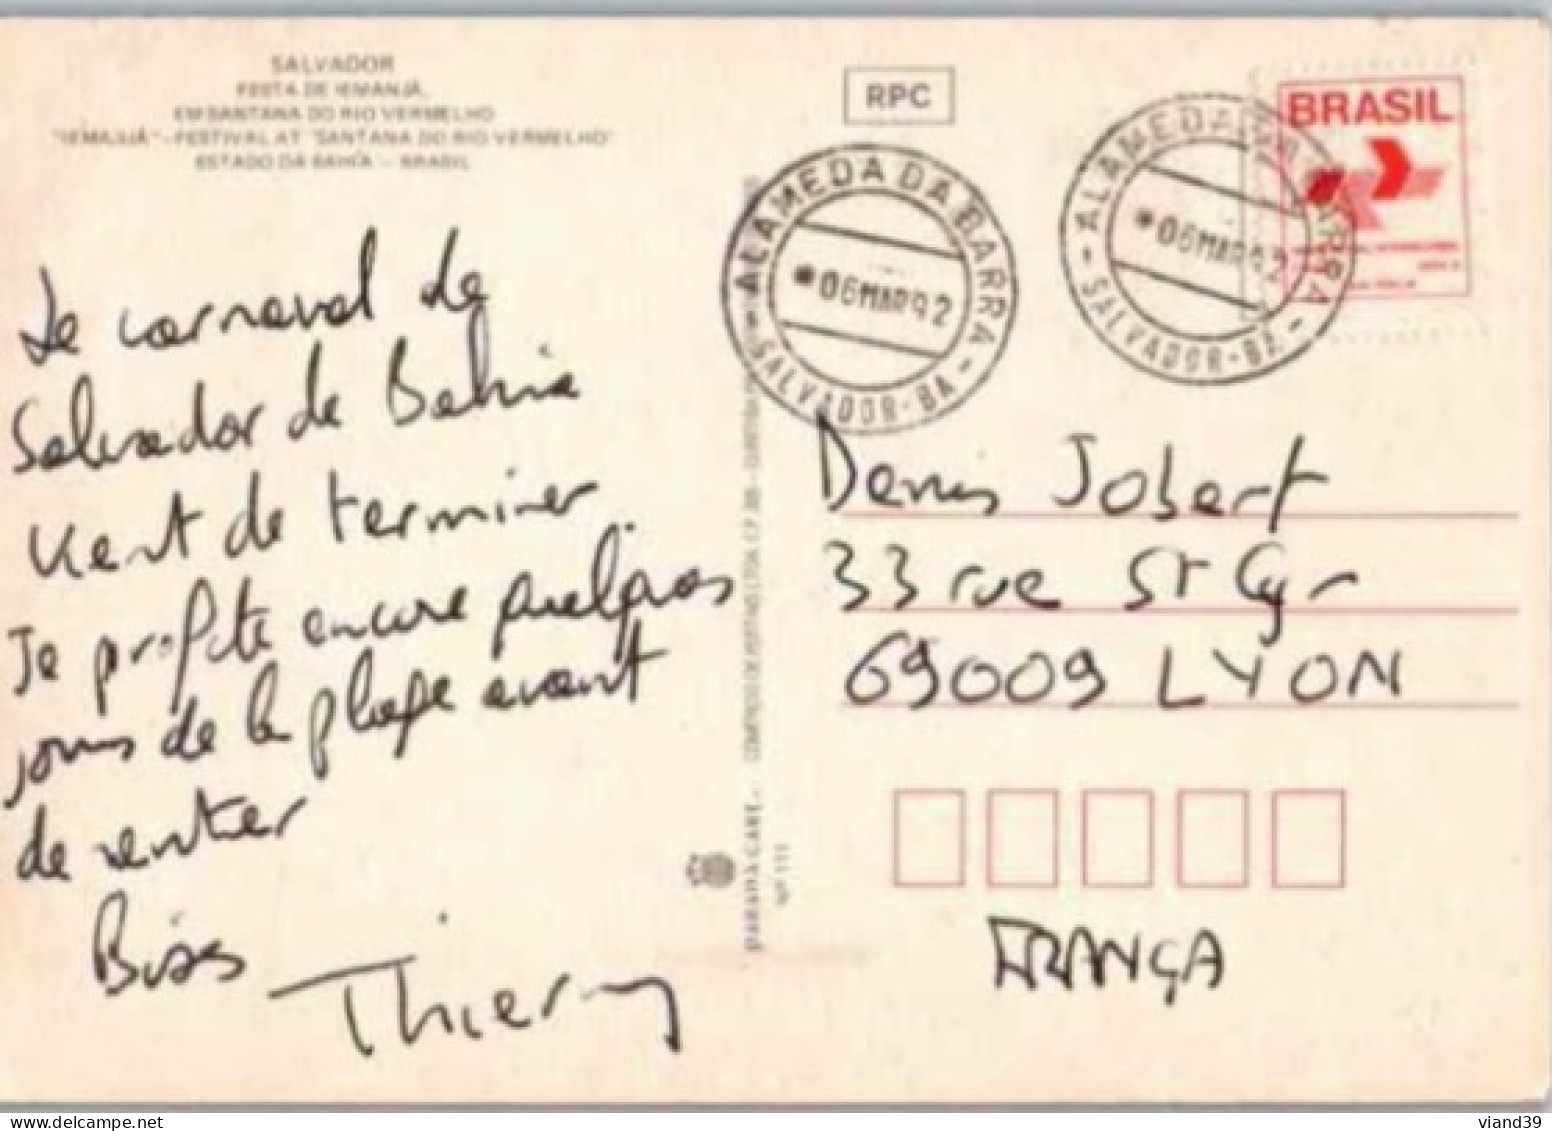 SALVADOR
FESTA DE IEMANJÁ,
EM SANTANA DO RIO VERMELHO
"IEMAJUÁ" - FESTIVAL AT "SANTANA DO RIO VERMELHO"
ESTADO DA BAHÍA - BRASIL
Le carnaval de
Salvador de Bahia
Vient de terminer
Je profite encore quelques
jours de la plage avant
de rentrer
Bises
Thierry
PARANÁ-CARD
Nº 111
RPC
ALAMEDA DA BARRA
*06MAR92
- SALVADOR-BA -
ALAMEDA DA BARRA
*06MAR92
- SALVADOR-BA -
BRASIL
Denis Jobert
33 rue St Cyr
69009 LYON
FRANÇA
viand39